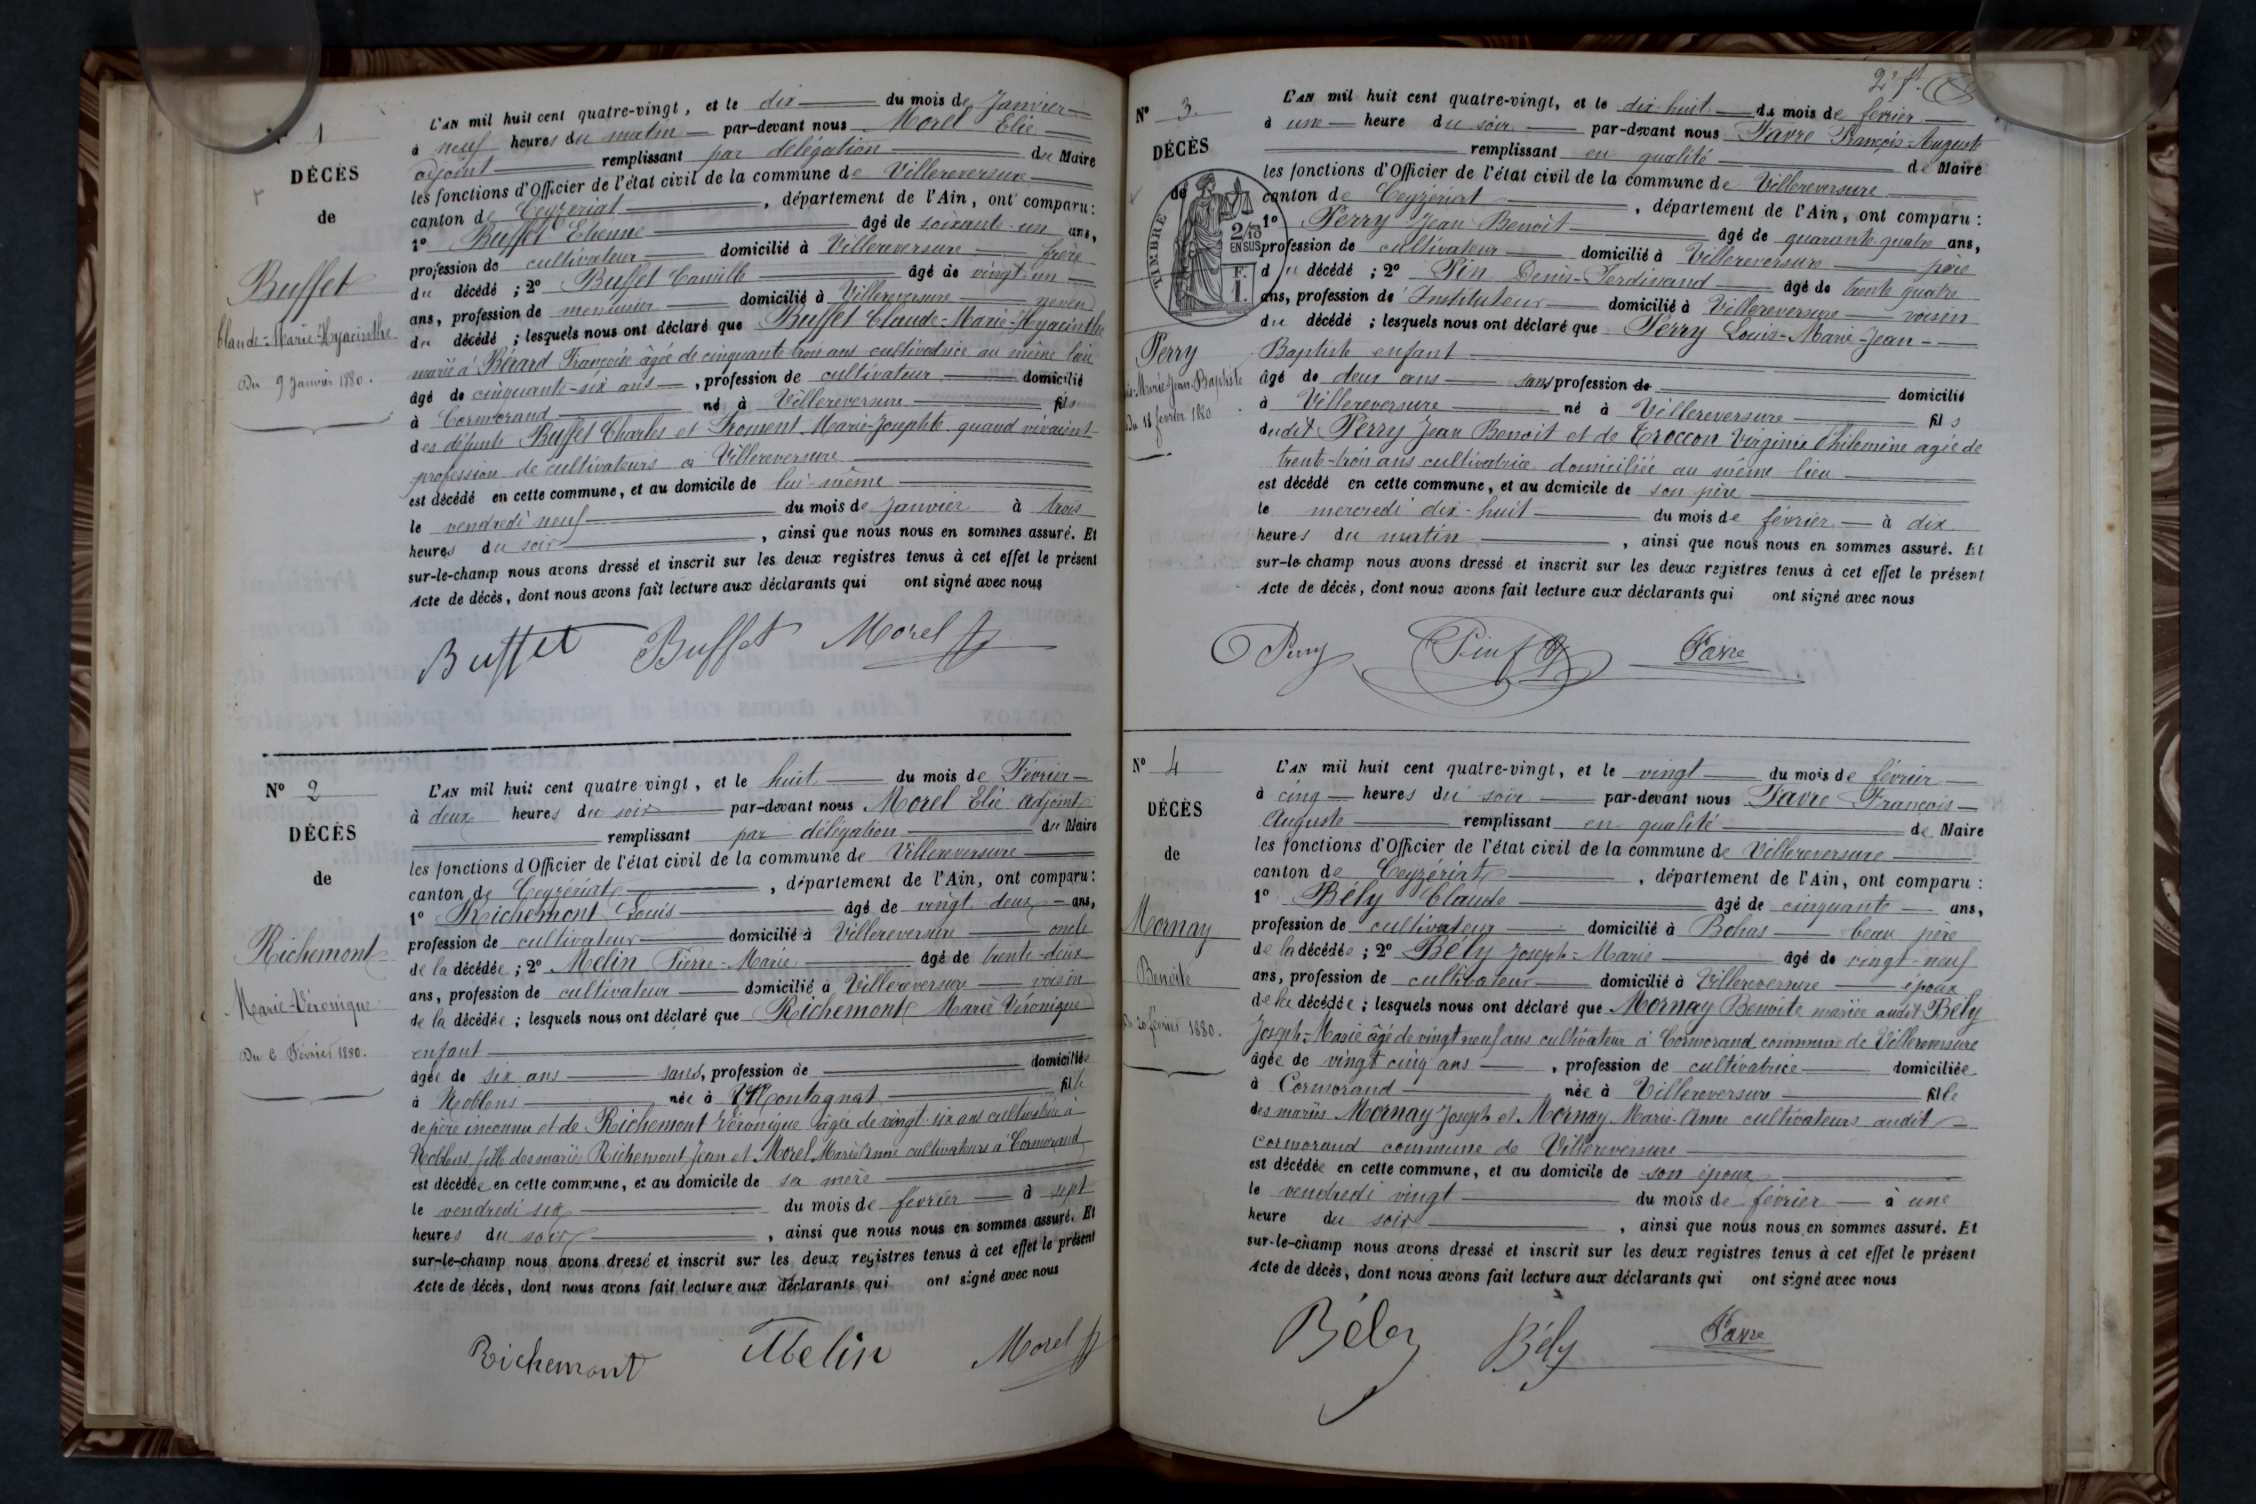 N° 1
DÉCÈS
de
Buffet
Claude-Marie-Hyacinthe
Du 9 Janvier 1880.
L'AN mil huit cent quatre-vingt, et le dix du mois de Janvier
à neuf heures du matin par-devant nous Morel Elie
adjoint remplissant par délégation du Maire
les fonctions d'Officier de l'état civil de la commune de Villereversure
canton de Ceyzériat, département de l'Ain, ont comparu:
1° Buffet Etienne âgé de soixante-un ans,
profession de cultivateur domicilié à Villereversure frère
du décédé ; 2° Buffet Camille âgé de vingt-un
ans, profession de menuisier domicilié à Villereversure neveu
du décédé ; lesquels nous ont déclaré que Buffet Claude-Marie-Hyacinthe
marié à Bérard Françoise âgée de cinquante trois ans cultivatrice au même lieu
âgé de cinquante-six ans, profession de cultivateur domicilié
à Cormorand né à Villereversure fils
des défunts Buffet Charles et Froment Marie-Josephte quand vivaient
profession de cultivateurs à Villereversure
est décédé en cette commune, et au domicile de lui-même
le vendredi neuf du mois de Janvier à trois
heures du soir, ainsi que nous nous en sommes assuré. Et
sur-le-champ nous avons dressé et inscrit sur les deux registres tenus à cet effet le présent
Acte de décès, dont nous avons fait lecture aux déclarants qui ont signé avec nous
Buffet Buffet Morel
N° 2
DÉCÈS
de
Richemont
Marie-Véronique
Du 6 Février 1880.
L'AN mil huit cent quatre vingt, et le huit du mois de Février
à deux heures du soir par-devant nous Morel Elie adjoint
remplissant par délégation du Maire
les fonctions d'Officier de l'état civil de la commune de Villereversure
canton de Ceyzériat, département de l'Ain, ont comparu:
1° Richemont Louis âgé de vingt-deux ans,
profession de cultivateur domicilié à Villereversure oncle
de la décédée ; 2° Melin Pierre-Marie âgé de trente-deux
ans, profession de cultivateur domicilié à Villereversure voisin
de la décédée ; lesquels nous ont déclaré que Richemont Marie Véronique
enfant
âgée de six ans sans, profession de domiciliée
à Noblens née à Montagnat fille
de père inconnu et de Richemont Véronique âgée de vingt-six ans cultivatrice à
Noblens fille des mariés Richemont Jean et Morel Marie Anne cultivateurs à Cormorand
est décédée en cette commune, et au domicile de sa mère
le vendredi six du mois de février à sept
heures du soir, ainsi que nous nous en sommes assuré. Et
sur-le-champ nous avons dressé et inscrit sur les deux registres tenus à cet effet le présent
Acte de décès, dont nous avons fait lecture aux déclarants qui ont signé avec nous
Richemont Melin Morel
2e ft
N° 3.
DÉCÈS
de
TIMBRE
2/10
EN SUS
Perry
Marie-Jean-Baptiste
Du 18 février 1880
L'AN mil huit cent quatre-vingt, et le dix-huit du mois de février
à une heure du soir par-devant nous Favre François-Auguste
remplissant en qualité de Maire
les fonctions d'Officier de l'état civil de la commune de Villereversure
canton de Ceyzériat, département de l'Ain, ont comparu :
1° Perry Jean Benoit âgé de quarante-quatre ans,
profession de cultivateur domicilié à Villereversure père
du décédé ; 2° Pin Denis-Ferdinand âgé de trente quatre
ans, profession de Instituteur domicilié à Villereversure voisin
du décédé ; lesquels nous ont déclaré que Perry Louis-Marie-Jean-
Baptiste enfant
âgé de deux ans sans profession de domicilié
à Villereversure né à Villereversure fils
dudit Perry Jean Benoit et de Troccon Virginie Philomène agée de
trente-trois ans cultivatrice domiciliée au même lieu
est décédé en cette commune, et au domicile de son père
le mercredi dix-huit du mois de février à dix
heures du matin, ainsi que nous nous en sommes assuré. Et
sur-le-champ nous avons dressé et inscrit sur les deux registres tenus à cet effet le présent
Acte de décès, dont nous avons fait lecture aux déclarants qui ont signé avec nous
Perry Pin Favre
N° 4
DÉCÈS
de
Mornay
Benoite
Du 20 février 1880.
L'AN mil huit cent quatre-vingt, et le vingt du mois de février
à cinq heures du soir par-devant nous Favre François-
Auguste remplissant en qualité de Maire
les fonctions d'Officier de l'état civil de la commune de Villereversure
canton de Ceyzériat, département de l'Ain, ont comparu :
1° Bély Claude âgé de cinquante ans,
profession de cultivateur domicilié à Bohas beau père
de la décédée ; 2° Bély Joseph-Marie âgé de vingt-neuf
ans, profession de cultivateur domicilié à Villereversure époux
de la décédée ; lesquels nous ont déclaré que Mornay Benoite mariée audit Bély
Joseph-Marie âgé de vingt neuf ans cultivateur à Cormorand commune de Villereversure
âgée de vingt cinq ans, profession de cultivatrice domiciliée
à Cormorand née à Villereversure fille
des mariés Mornay Joseph et Mornay Marie-Anne cultivateurs audit
Cormorand commune de Villereversure
est décédée en cette commune, et au domicile de son époux
le vendredi vingt du mois de février à une
heure du soir, ainsi que nous nous en sommes assuré. Et
sur-le-champ nous avons dressé et inscrit sur les deux registres tenus à cet effet le présent
Acte de décès, dont nous avons fait lecture aux déclarants qui ont signé avec nous
Bély Bély Favre